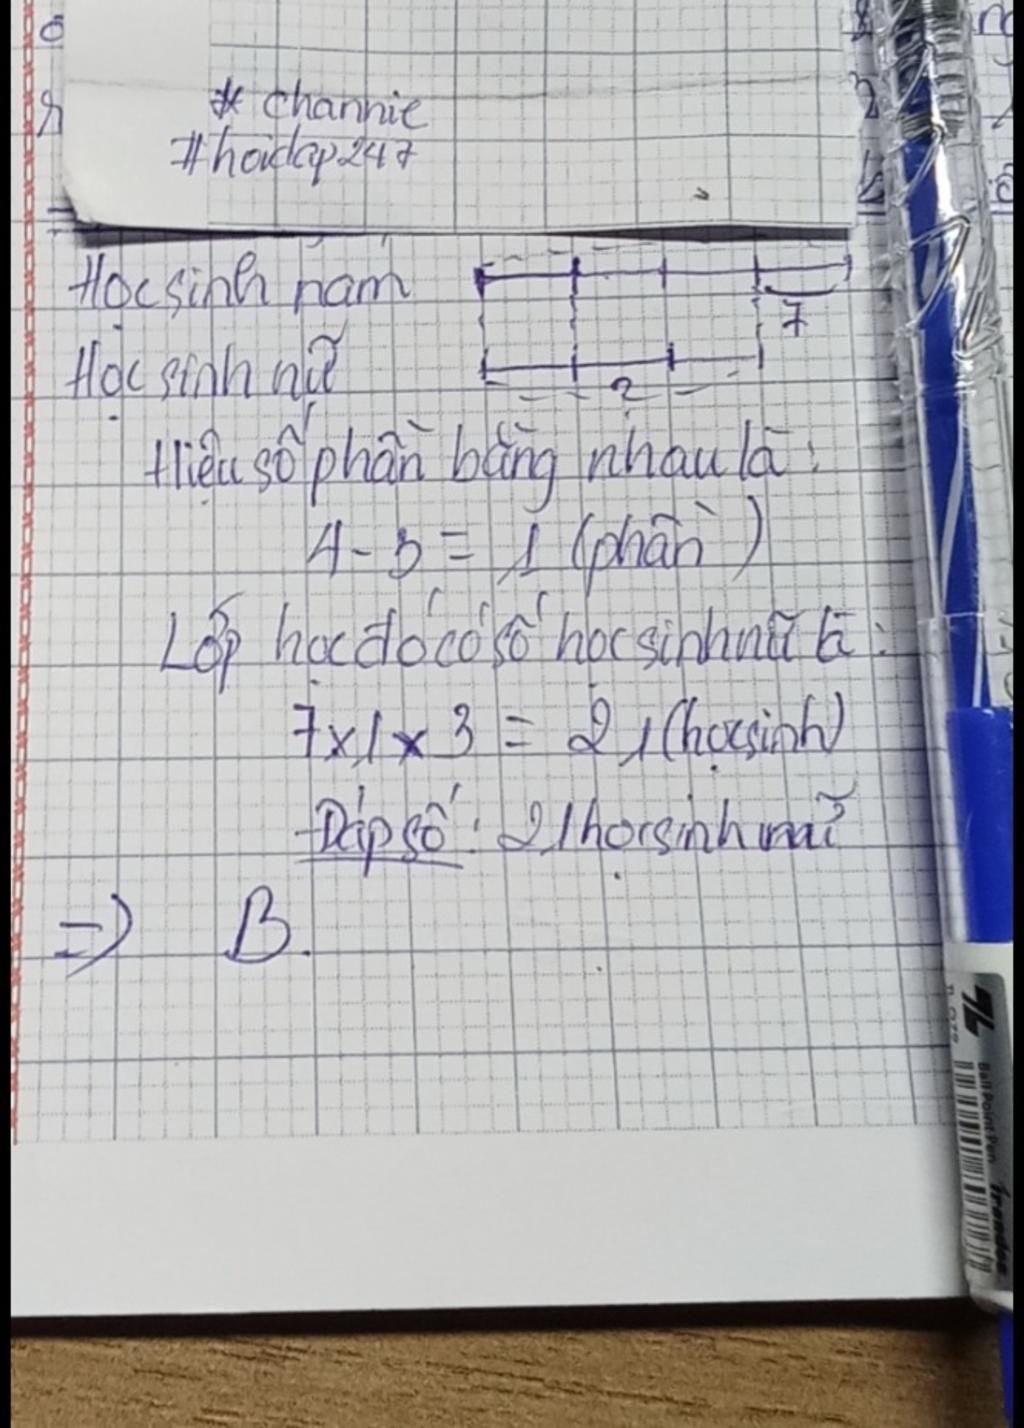 * channie
#hoidap247
Học sinh nam
7
Học sinh nữ
?
Hiệu số phần bằng nhau là:
4 - 3 = 1 (phần)
Lớp học đó có số học sinh nữ là:
7 x 1 x 3 = 21 (học sinh)
Đáp số: 21 học sinh nữ
=> B.
Ball Point Pen Trendee